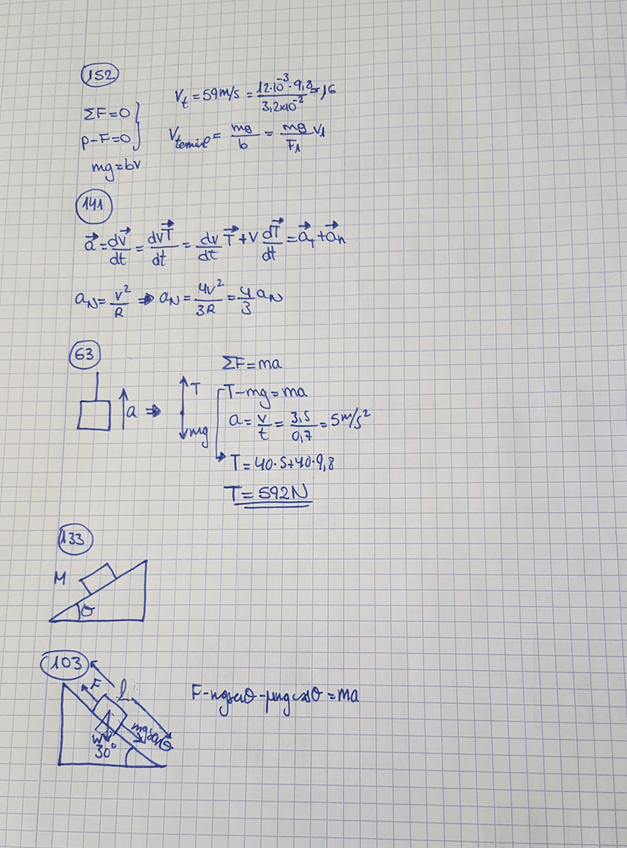 152
ΣF=0
p-F=0
mg=bv
V_t = 59 m/s = (12·10^-3 · 9,8)/(3,2x10^-2) = 16
V = mg/b = mg/F_1 V_1
141
a⃗ = dv⃗/dt = dvT⃗/dt = dv/dt T⃗ + V dT⃗/dt = a⃗_T + a⃗_n
a_N = v²/R ⇒ a_N = 4v²/3R = 4/3 a_N
63
ΣF = ma
a ⇒ T
mg
T-mg = ma
a = v/t = 3,5/0,7 = 5 m/s²
T = 40·5+40·9,8
T = 592N
133
M
θ
103
F
l
W
30°
F- -μmgcosθ = ma